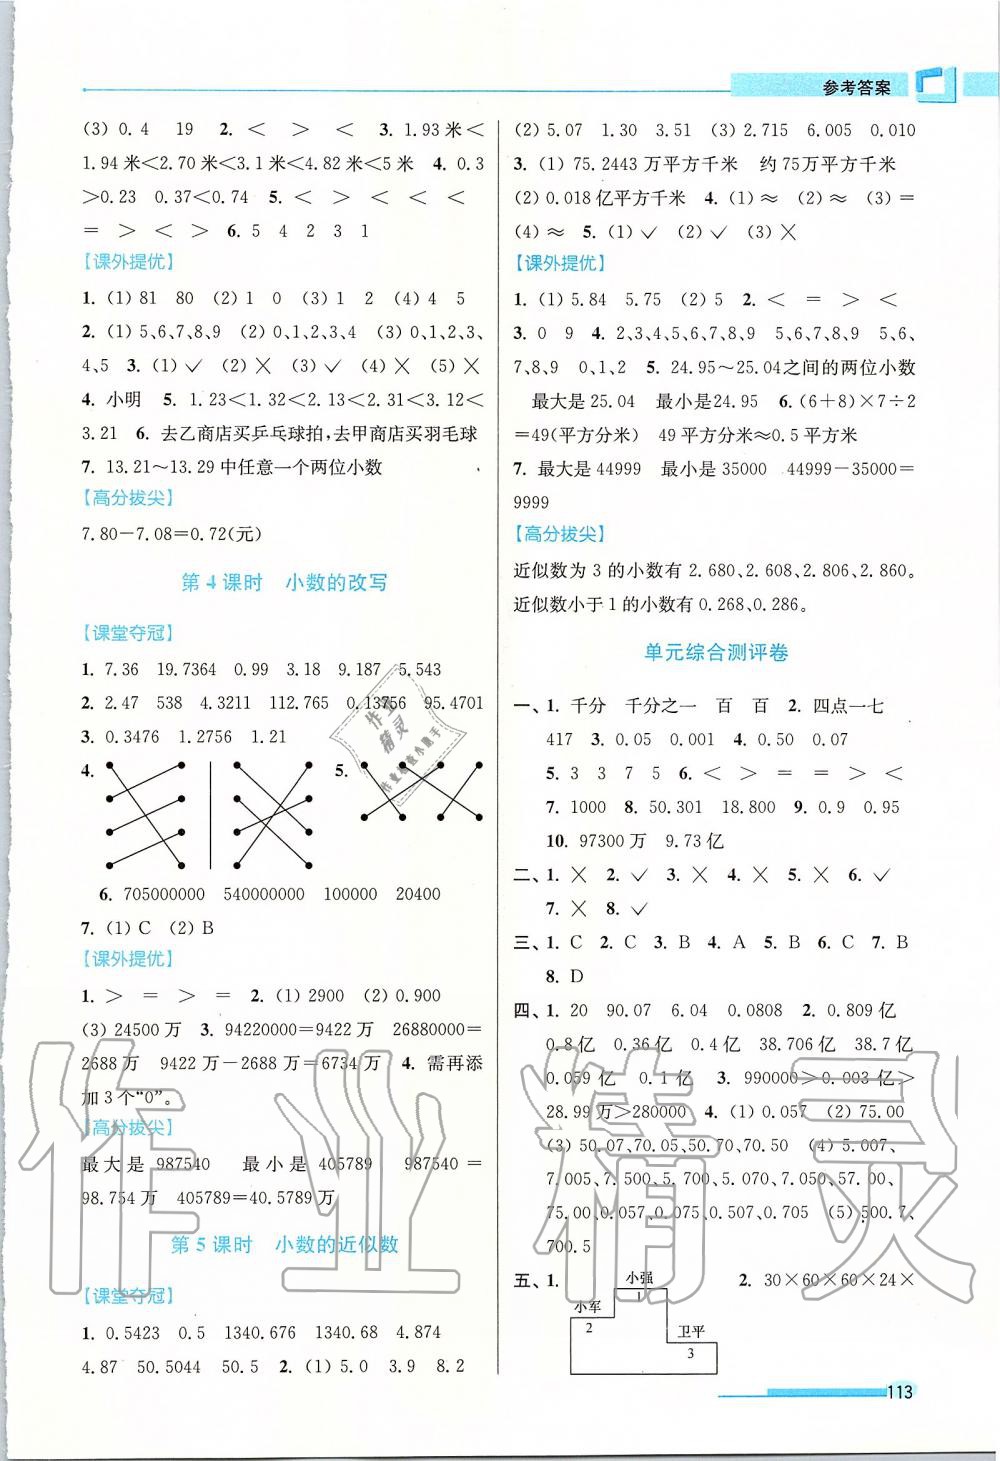 参考答案
(3) 0.4 19 2. < > < 3. 1.93米<
1.94米<2.70米<3.1米<4.82米<5米 4. 0.3
>0.23 0.37<0.74 5. < > < < <
= > < > 6. 5 4 2 3 1
【课外提优】
1. (1) 81 80 (2) 1 0 (3) 1 2 (4) 4 5
2. (1) 5、6、7、8、9 (2) 0、1、2、3、4 (3) 0、1、2、3、
4、5 3. (1) ✓ (2) ╳ (3) ✓ (4) ╳ (5) ╳
4. 小明 5. 1.23<1.32<2.13<2.31<3.12<
3.21 6. 去乙商店买乒乓球拍,去甲商店买羽毛球
7. 13.21~13.29中任意一个两位小数
【高分拔尖】
7.80-7.08=0.72(元)
第4课时 小数的改写
【课堂夺冠】
1. 7.36 19.7364 0.99 3.18 9.187 5.543
2. 2.47 538 4.3211 112.765 0.13756 95.4701
3. 0.3476 1.2756 1.21
4. 5.
6. 705000000 540000000 100000 20400
7. (1) C (2) B
【课外提优】
1. > = > = 2. (1) 2900 (2) 0.900
(3) 24500万 3. 94220000=9422万 26880000=
2688万 9422万-2688万=6734万 4. 需再添
加3个“0”。
【高分拔尖】
最大是 987540 最小是 405789 987540=
98.754万 405789=40.5789万
第5课时 小数的近似数
【课堂夺冠】
1. 0.5423 0.5 1340.676 1340.68 4.874
4.87 50.5044 50.5 2. (1) 5.0 3.9 8.2
(2) 5.07 1.30 3.51 (3) 2.715 6.005 0.010
3. (1) 75.2443万平方千米 约75万平方千米
(2) 0.018亿平方千米 4. (1) ≈ (2) ≈ (3) =
(4) ≈ 5. (1) ✓ (2) ✓ (3) ╳
【课外提优】
1. (1) 5.84 5.75 (2) 5 2. < = > <
3. 0 9 4. 2、3、4、5、6、7、8、9 5、6、7、8、9 5、6、
7、8、9 0、1、2 5. 24.95~25.04之间的两位小数
最大是25.04 最小是24.95 6. (6+8)×7÷2
=49(平方分米) 49平方分米≈0.5平方米
7. 最大是44999 最小是35000 44999-35000=
9999
【高分拔尖】
近似数为3的小数有2.680、2.608、2.806、2.860。
近似数小于1的小数有0.268、0.286。
单元综合测评卷
一、1. 千分 千分之一 百 百 2. 四点一七
417 3. 0.05 0.001 4. 0.50 0.07
5. 3 3 7 5 6. < > = = > <
7. 1000 8. 50.301 18.800 9. 0.9 0.95
10. 97300万 9.73亿
二、1. ╳ 2. ✓ 3. ╳ 4. ╳ 5. ╳ 6. ✓
7. ╳ 8. ✓
三、1. C 2. C 3. B 4. A 5. B 6. C 7. B
8. D
四、1. 20 90.07 6.04 0.0808 2. 0.809亿
0.8亿 0.36亿 0.4亿 38.706亿 38.7亿
0.059亿 0.1亿 3. 990000>0.003亿>
28.99万>280000 4. (1) 0.057 (2) 75.00
(3) 50.07、70.05、50.70、70.50 (4) 5.007、
7.005、7.500、5.700、5.070、7.050、57.00、
75.00、0.057、0.075、0.507、0.705 (5) 500.7、
700.5
五、1. 2. 30×60×60×24×
小强
1
小军
2
卫平
3
113
作业精灵
作业
精灵
作业检查小助手